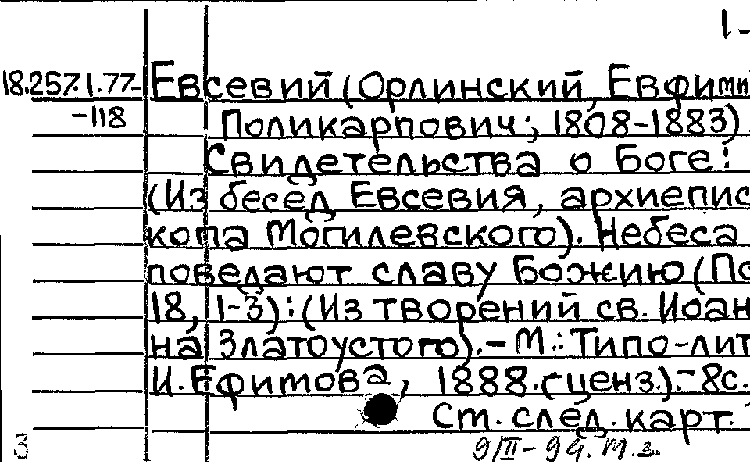 1-
18.257.1.77- Евсевий (Орлинский, Евфими
-118 Поликарпович; 1808-1883)
Свидетельства о Боге:
(Из бесед Евсевия, архиепис
копа Могилевского). Небеса
поведают славу Божию (Пс
18, 1-3): (Из творений св. Иоан
на Златоустого).- М.: Типо-лит
И. Ефимова, 1888. (ценз.).- 8с.
См. след. карт.
3 9/II-94. М.з.